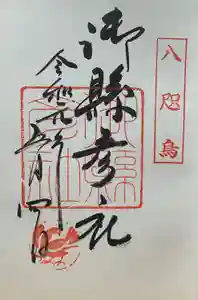 八咫烏
御縣彦社
令和元年
五月四日